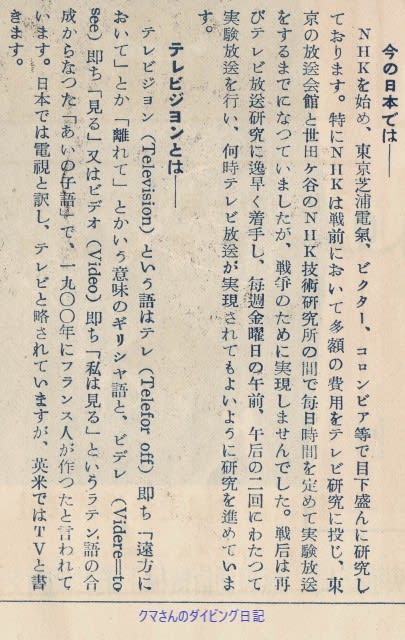 今の日本では――
NHKを始め、東京芝浦電氣、ビクター、コロンビア等で目下盛んに研究し
ております。特にNHKは戦前において多額の費用をテレビ研究に投じ、東
京の放送会館と世田ヶ谷のNHK技術研究所の間で毎日時間を定めて実験放送
をするまでになつていましたが、戦争のために実現しませんでした。戦后は再
びテレビ放送研究に逸早く着手し、毎週金曜日の午前、午后の二回にわたつて
実験放送を行い、何時テレビ放送が実現されてもよいように研究を進めていま
す。
テレビジヨンとは――
テレビジヨン(Television)という語はテレ(Telefor off)即ち「遠方に
おいて」とか「離れて」とかいう意味のギリシヤ語と、ビデレ(Videre=to
see)即ち「見る」又はビデオ(Video)即ち「私は見る」というラテン語の合
成からなつた「あいの子語」で、一九〇〇年にフランス人が作つたと言われて
います。日本では電視と訳し、テレビと略されていますが、英米ではTVと書
きます。
クマさんのダイビング日記